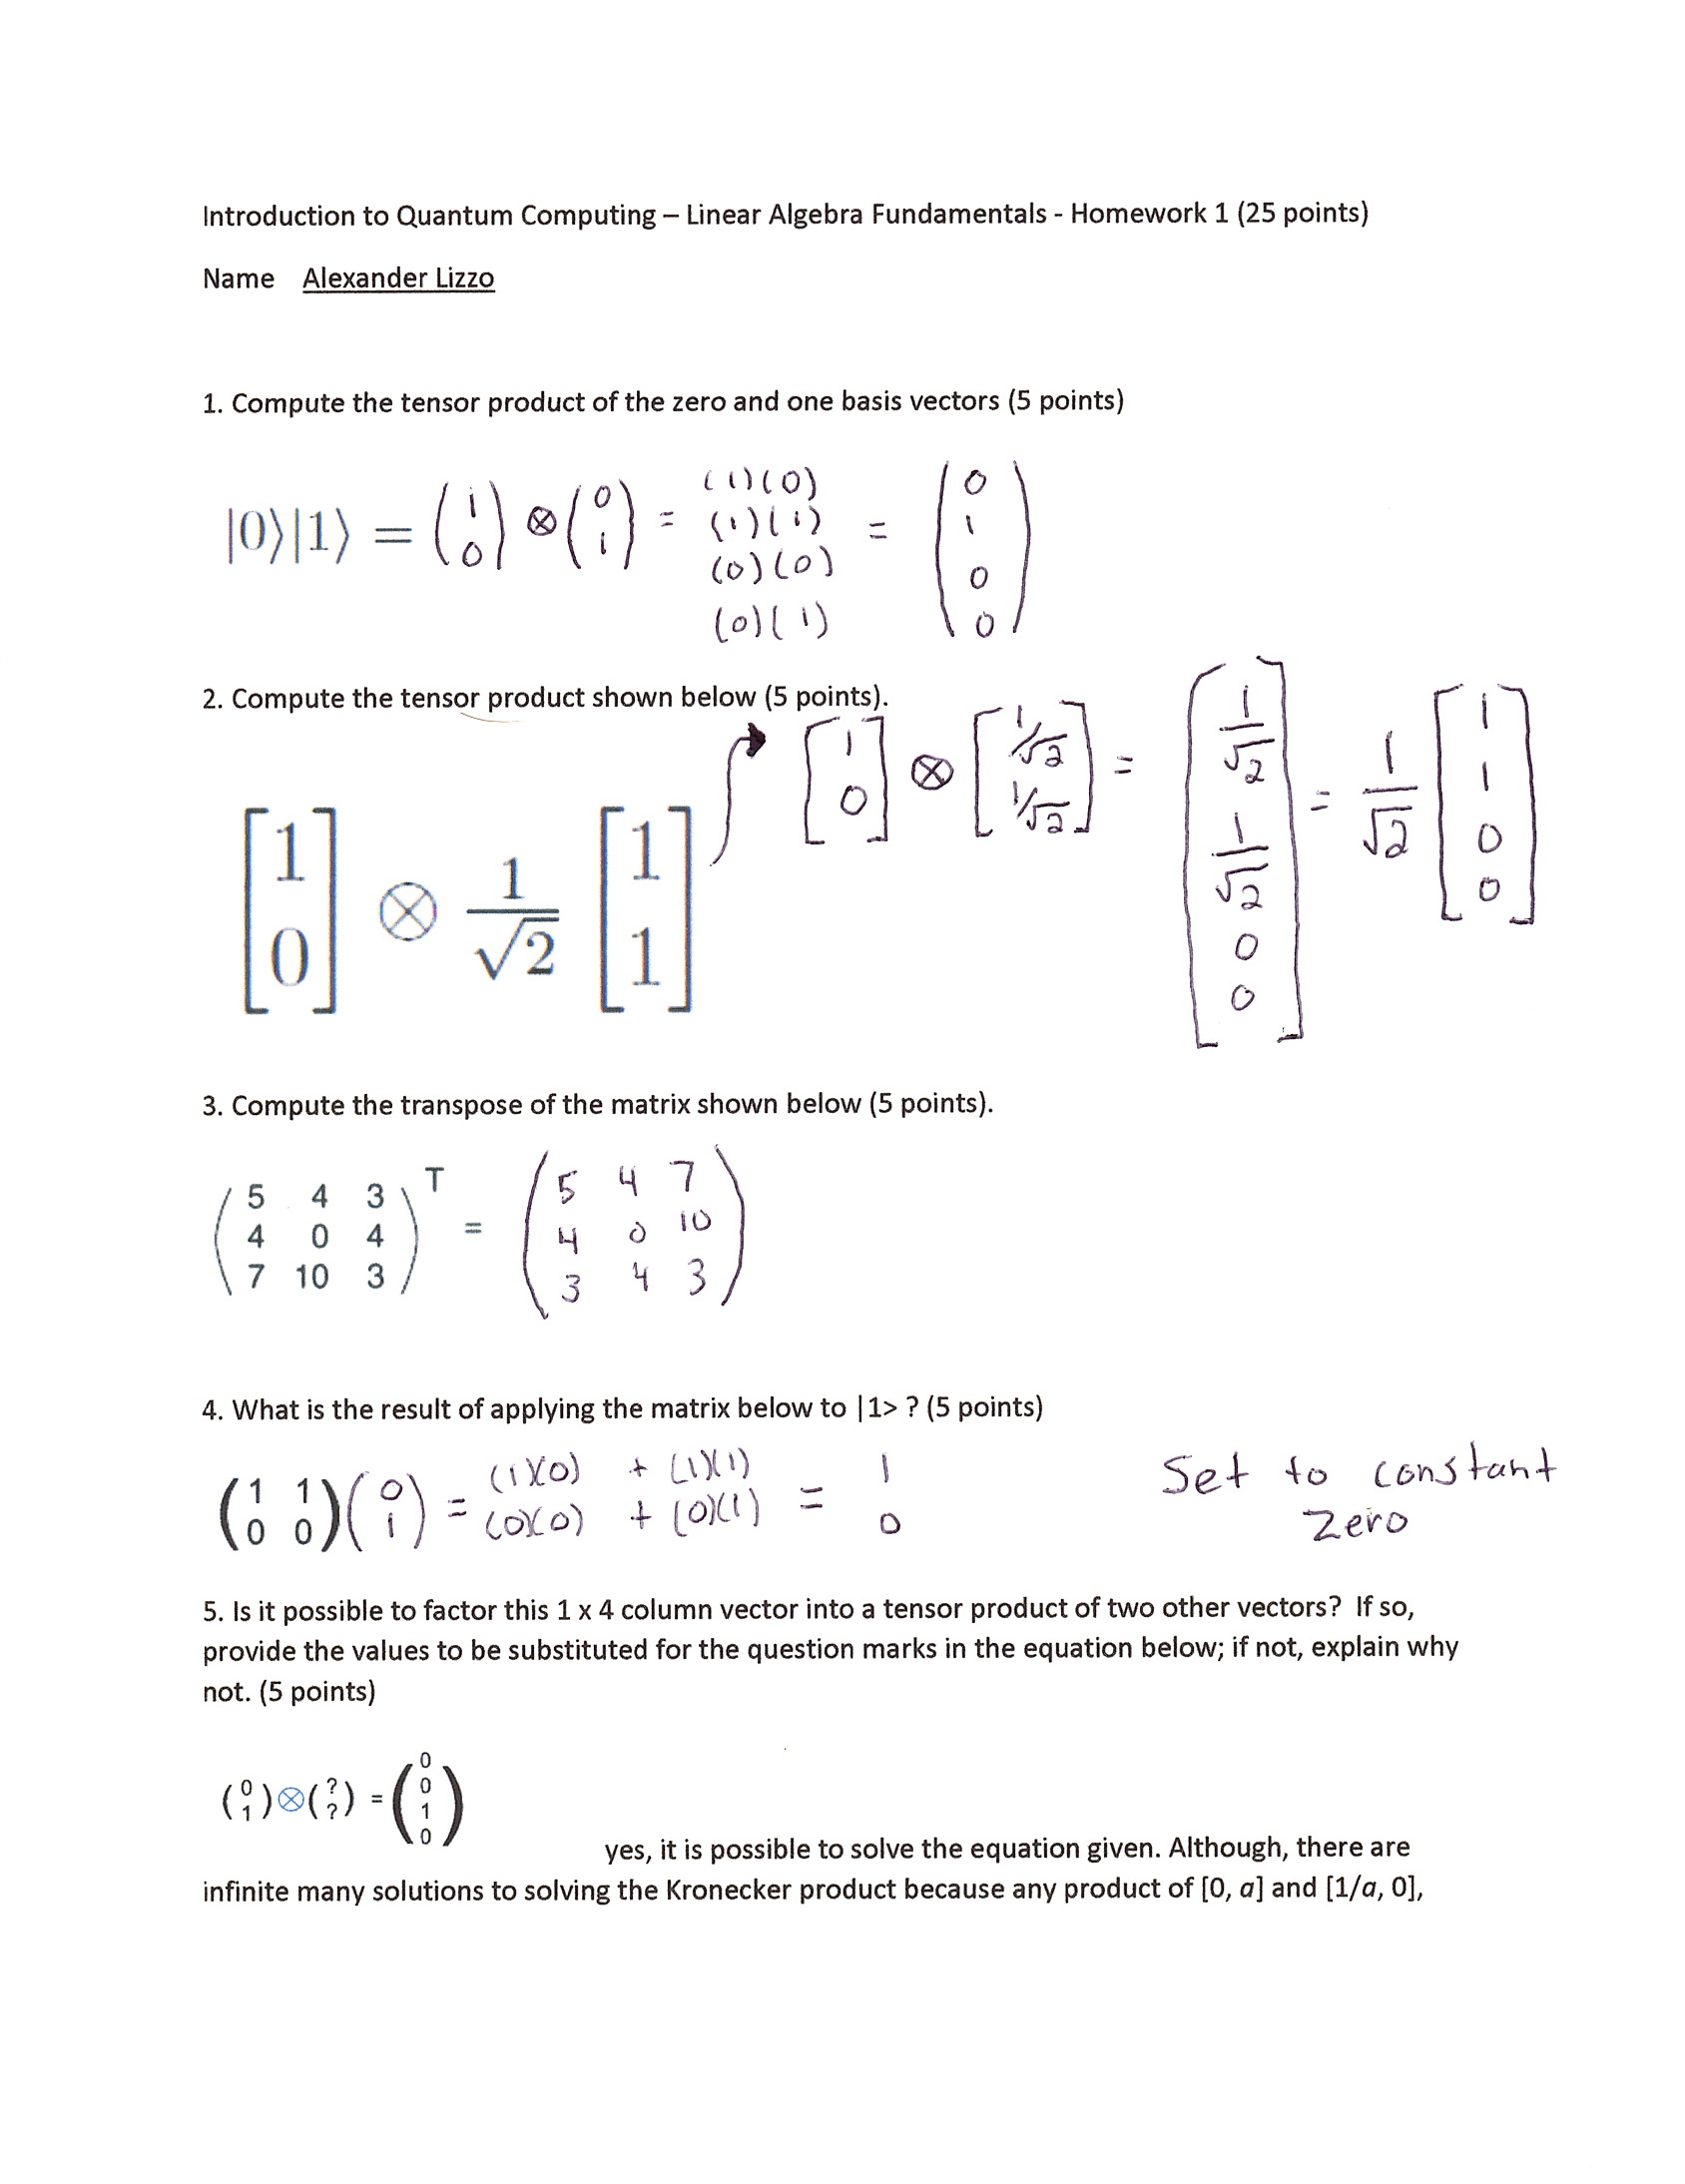 Introduction to Quantum Computing – Linear Algebra Fundamentals - Homework 1 (25 points)
Name Alexander Lizzo
1. Compute the tensor product of the zero and one basis vectors (5 points)
|0⟩|1⟩ = (1 0) ⊗ (0 1) = (1)(0) (1)(1) (0)(0) (0)(1) = (0 1 0 0)
2. Compute the tensor product shown below (5 points).
[1 0] ⊗ 1/√2 [1 1]
[1 0] ⊗ [1/√2 1/√2] = [1/√2 1/√2 0 0] = 1/√2 [1 1 0 0]
3. Compute the transpose of the matrix shown below (5 points).
(5 4 3
4 0 4
7 10 3)ᵀ =
(5 4 7
4 0 10
3 4 3)
4. What is the result of applying the matrix below to |1> ? (5 points)
(1 1 0 0)(0 1) = (1)(0) + (1)(1) (0)(0) + (0)(1) = 1 0
Set to constant
Zero
5. Is it possible to factor this 1 x 4 column vector into a tensor product of two other vectors? If so,
provide the values to be substituted for the question marks in the equation below; if not, explain why
not. (5 points)
(0 1)⊗(? ?) = (0 0 1 0)
yes, it is possible to solve the equation given. Although, there are
infinite many solutions to solving the Kronecker product because any product of [0, a] and [1/a, 0],